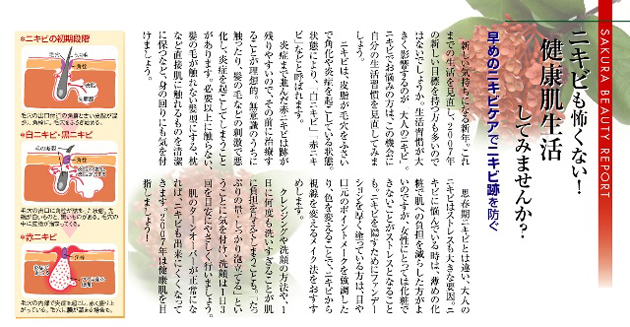 SAKURA BEAUTY REPORT
ニキビも怖くない！
健康肌生活
してみませんか？
早めのニキビケアでニキビ跡を防ぐ
新しい気持ちになる新年。これ
までの生活を見直し、2007年
の新しい目標を持つ方も多いので
はないでしょうか。生活習慣が大
きく影響するのが「大人のニキビ」。
ニキビでお悩みの方は、この機会に
自分の生活習慣を見直してみま
しょう。
ニキビは、皮脂が毛穴をふさい
で角化や炎症を起こしている状態。
状態により、「白ニキビ」「赤ニキ
ビ」などと呼ばれます。
炎症まで進んだ赤ニキビは跡が
残りやすいので、その前に治療す
ることが理想的。無意識のうちに
触ったり、髪の毛などの刺激で悪
化し、炎症を起こしてしまうこと
があります。必要以上に触らない、
髪の毛が触れない髪型にする、枕
など直接肌に触れるものを清潔
に保つなど、身の回りにも気を付
けましょう。
思春期ニキビとは違い、大人の
ニキビはストレスも大きな要因。ニ
キビに悩んでいる時は、薄めの化
粧で肌への負担を減らした方がよ
いのですが、女性にとっては化粧で
きないことがストレスとなること
も。ニキビを隠すためにファンデー
ションを厚く塗っている方は、目や
口元のポイントメークを強調した
り、色を変えることで、ニキビから
視線を変えるメイク法をおすす
めします。
クレンジングや洗顔の方法や、1
日に何度も洗いすぎることが肌
に負担を与えてしまうことも。「たっ
ぷりの量で、しっかり泡立てる」とい
うことに気を付け、洗顔は1日3
回を目安にやさしく行いましょう。
肌のターンオーバーが正常にな
れば、「ニキビも出来にくくなって
きます。2007年は健康肌を目
指しましょう！
●ニキビの初期段階
●白ニキビ・黒ニキビ
●赤ニキビ